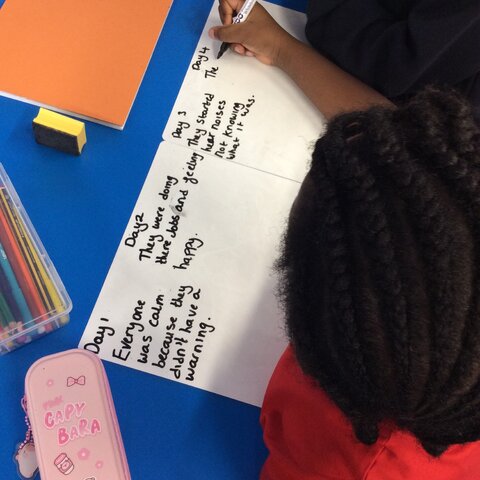 Day 1
Everyone
was calm
because they
didn't have a
warning.
Day2
They were doing
there Jobs and feeling
happy.
Day 3
They started
hear noises
Not knowing
what it was.
Day 4
The
CAPY
BARA